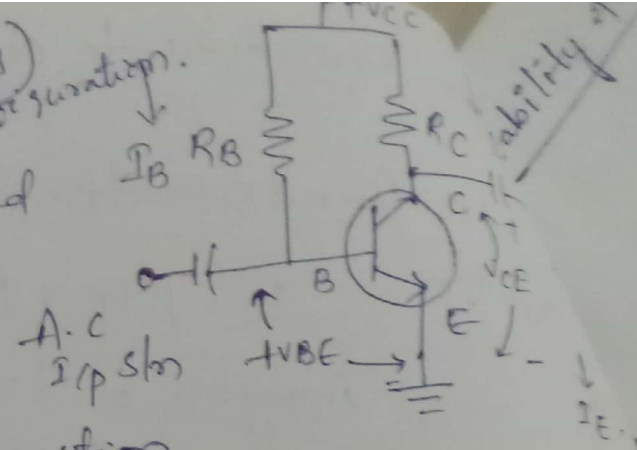 +VCC
iguration.
ability
IB RB
RC
d
C
B
VCE
A.C
E
I/p S/n
+VBE
-
IE.